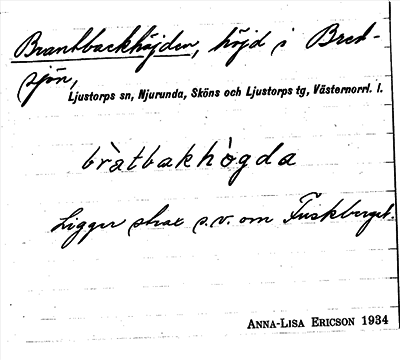 Brantbackhöjden, höjd i Bred-
sjön,
Ljustorps sn, Njurunda, Sköns och Ljustorps tg, Västernorrl. l.
bràtbakhògda
Ligger strax s.v. om Fuskberget.
ANNA-LISA ERICSON 1934